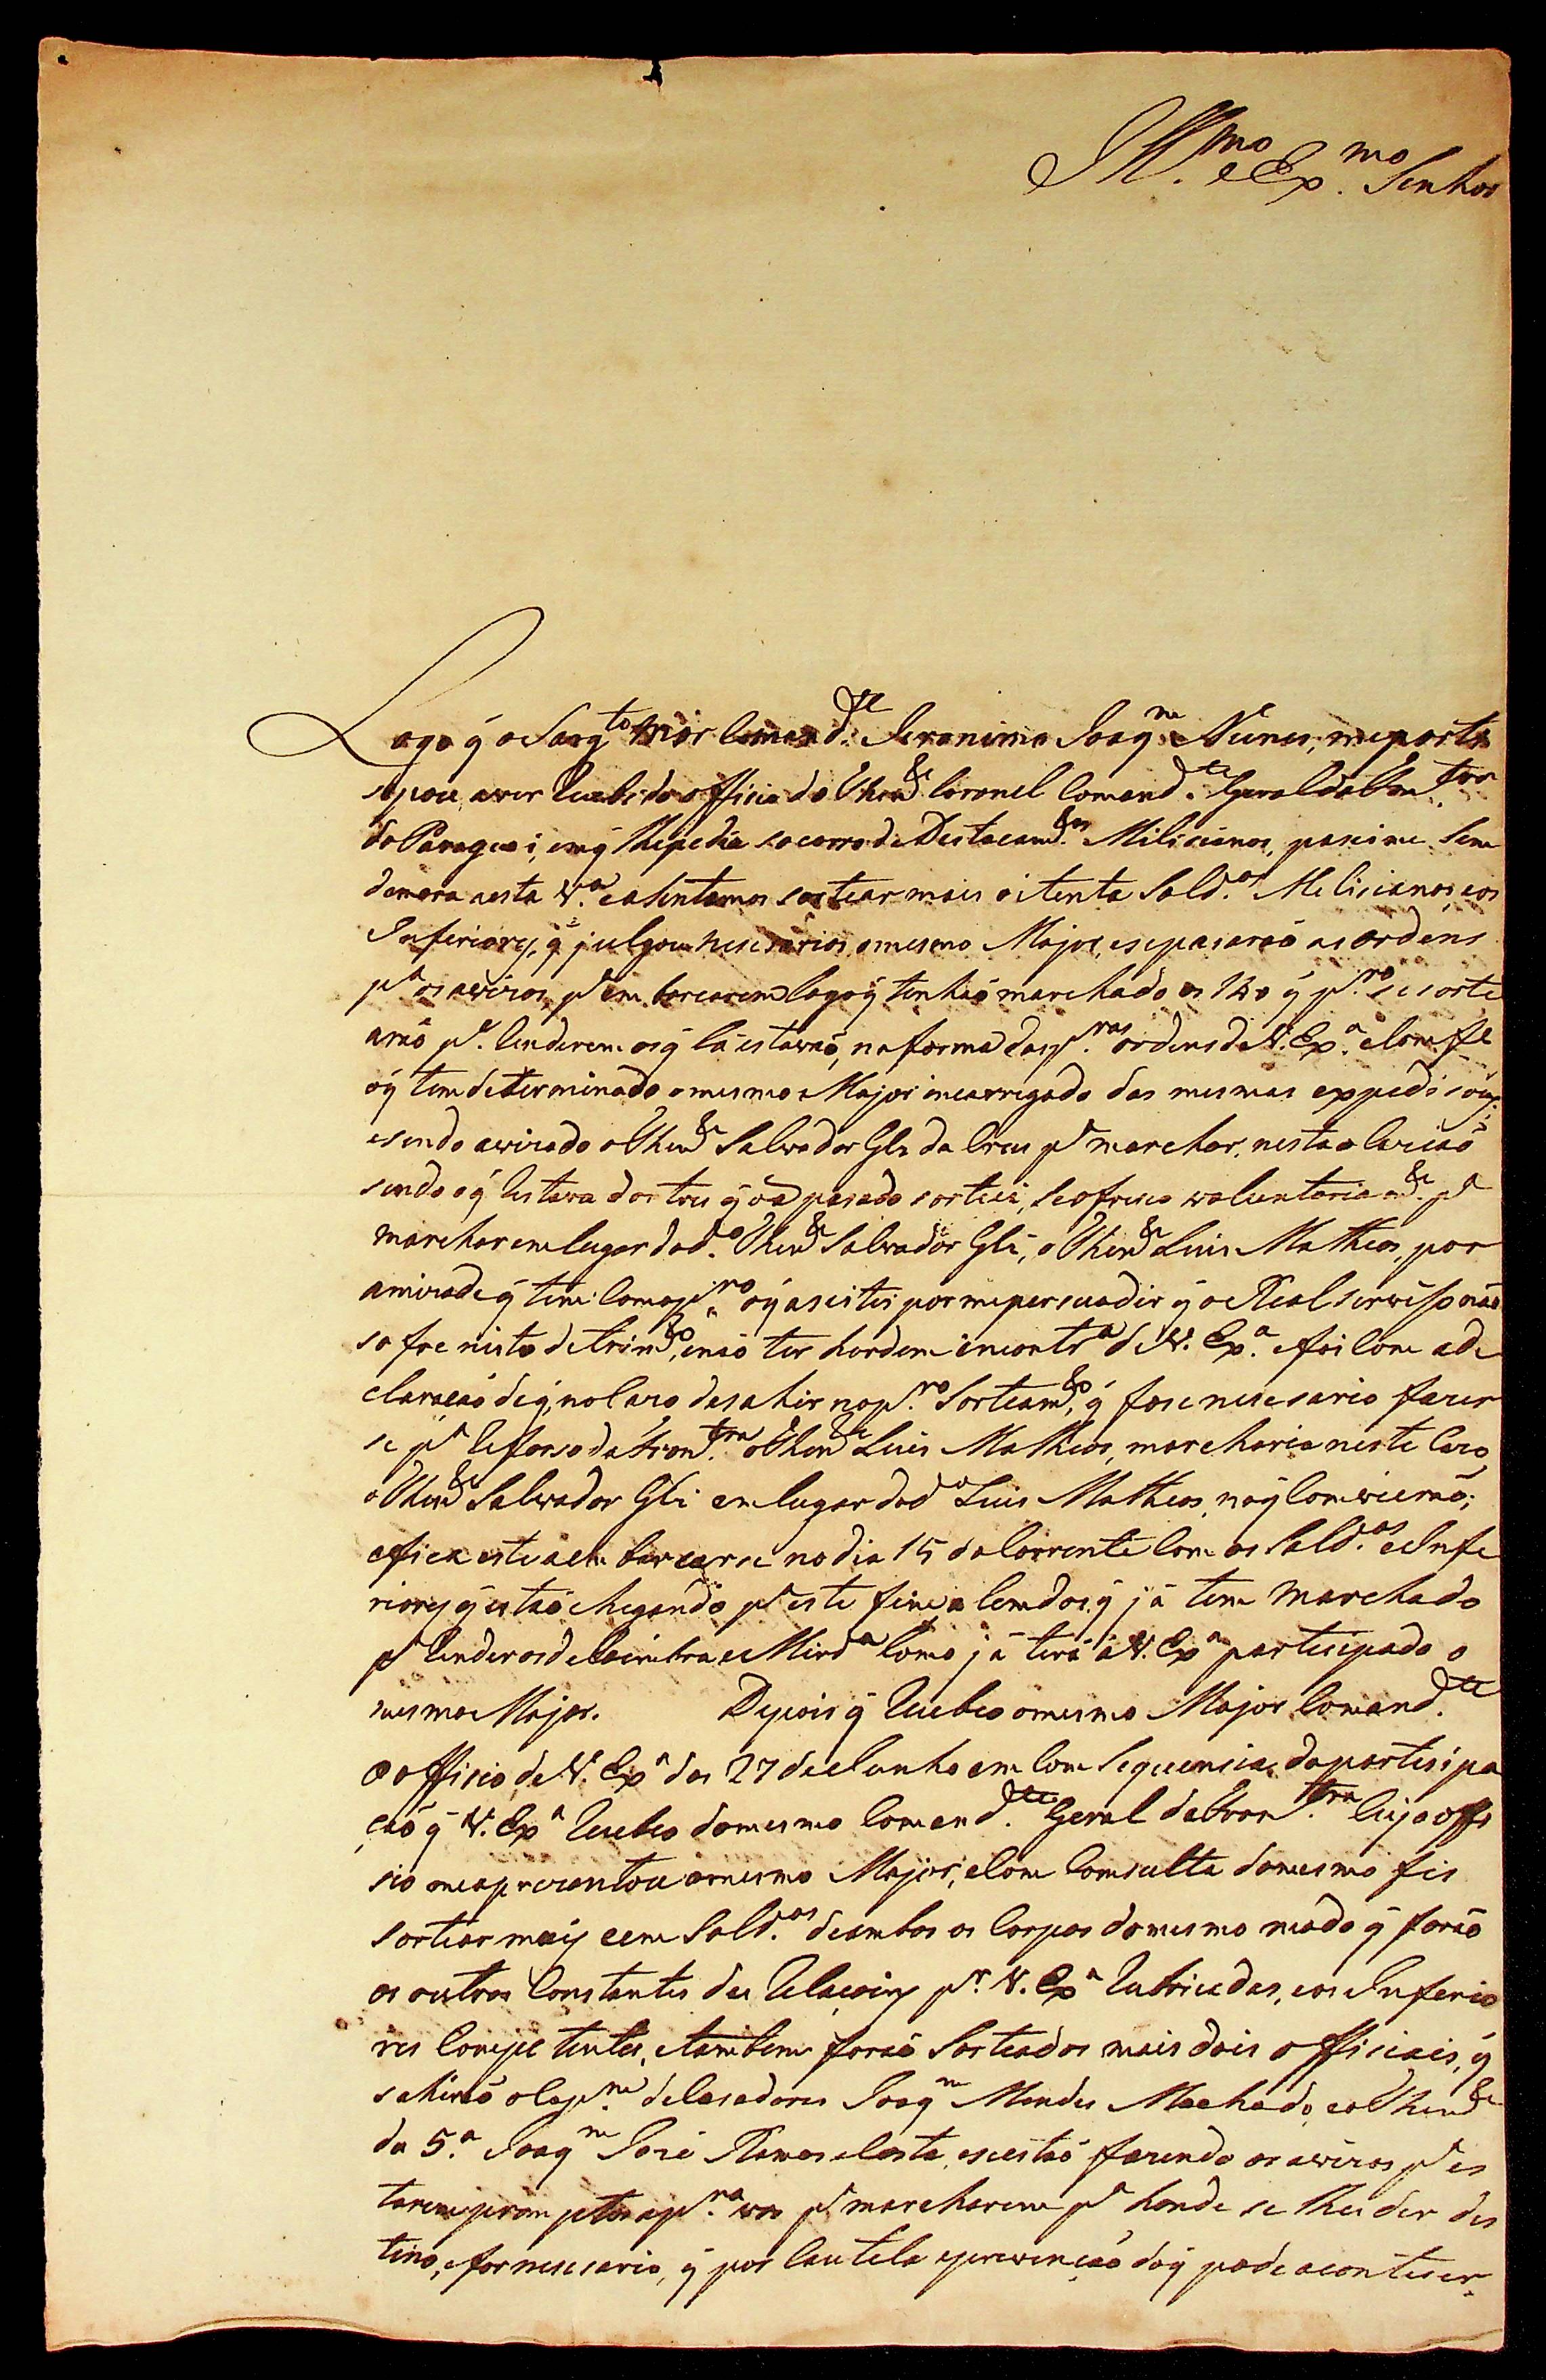 Ill.mo e Ex.mo Senhor
Logo q̃ o Sarg.to Mor Comand.te Jeronimo Joaq.m Nunes, me parte
sipou aver recebido officio do Then.te Coronel Comand.te Geral da Fron.tra
do Paraguai, em q̃ lhe pedia socorro de Destacam.tos Milicianos, pasei me sem
demora a esta V.a e asentamos sortear mais oitenta Sold.os Milicianos, e os
Inferiores, q̃ julgou nesesarios o mesmo Major, e se pasaraõ as ordens
p.a os avizos, p.a embarcarem logo q̃ tenhaõ marchado os 120 q̃ p.ro se sorte
araõ p.a renderem os q̃ lá estavaõ, na forma das p.ras ordens de V. Ex.a e comfe
o q̃ tem determinado o mesmo Major incarregado das mesmas expedisoiz;
e sendo avizado o Then.te Salvador Glz da Cruz p.a marchar, nesta ocaziaõ
sendo o q̃ restava dos tres q̃ o anno pasado sorteei, se ofreseo voluntariam.te p.a
marchar em lugar do d.o Then.te Salvador Glz, o Then.te Luis Matheos, por
amizade q̃ tem com o p.ro o q̃ aseitei por me persuadir q̃ o Real servisso não
sofre nisto detrim.to, e naõ ter hordem encontr.a de V. Ex.a e foi com a de
claraçaõ de q̃, no cazo de sahir no p.ro Sorteam.to, q̃ fose nesesario fazer
se p.a reforso da Fron.tra o Then.te Luis Matheos, marcharia neste cazo,
o Then.te Salvador Glz em lugar do d.o Luis Matheos, no q̃ comvieraõ;
e fica este a embarcarse no dia 15 do corrente com os Sold.os e Infe
riores q̃ estaõ chegando p.a este fim, alem dos q̃ já tem marchado
p.a render os de Coimbra e Mird.a como já terá a V. Ex.a partisipado o
mesmo Major. Depois q̃ recebeo o mesmo Major Comand.te
o officio de V. Ex.a de 27 de Junho em comsequencia, da partisipa
çaõ q̃ V. Ex.a recebeo do mesmo Comand.te Geral da Fron.tra cujo offi
sio me aprezentou o mesmo Major, e com comsulta do mesmo fis
sortear mais cem Sold.os de ambos os Corpos do mesmo modo q̃ foraõ
os outros constantes das relaçoins p.r V. Ex.a rubricadas, e os Inferio
res competentes, e tambem foraõ sorteados mais dois officiais, q̃
sahiraõ o Cap.m de Casadores Joaq.m Mendes Machado, e o Then.te
da 5.a Joaq.m Jozé Ramos e Costa, e se estaõ fazendo os avizos p.a es
tarem promptos a p.ra vos p.a marcharem p.a honde se lhes der des
tino, e for nesesario, q̃ por cautela e prevençaõ do q̃ pode aconteser